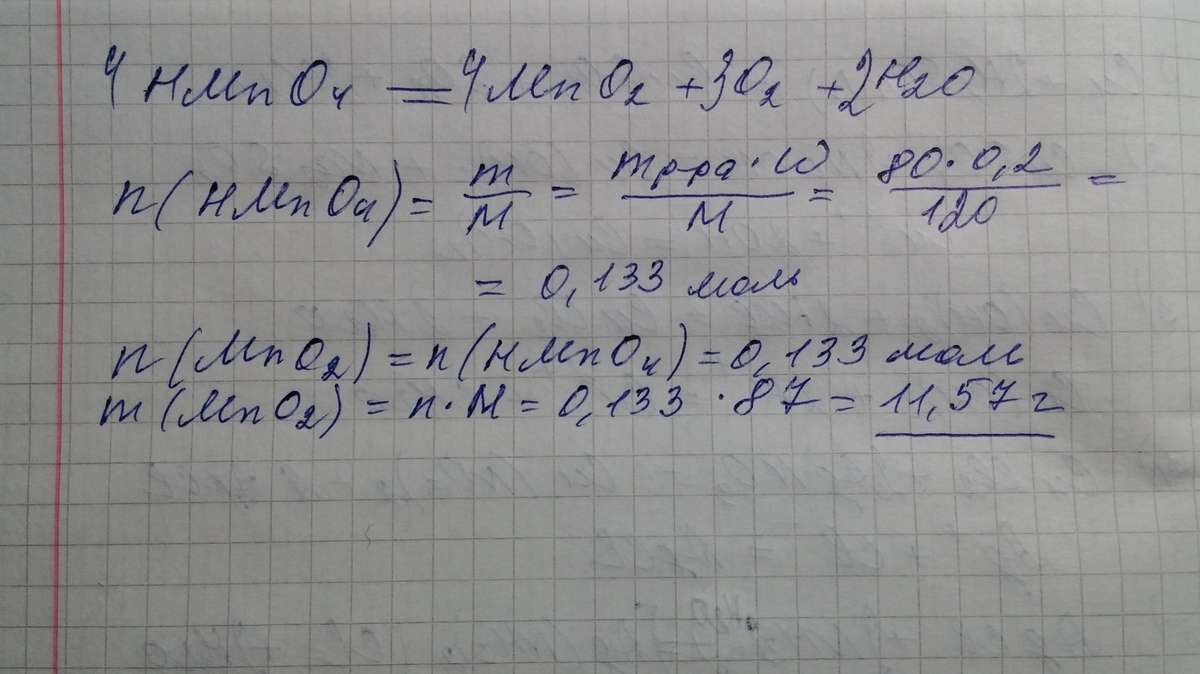 4 HMnO₄ = 4MnO₂ + 3O₂ + 2H₂O
n(HMnO₄) = m/M = mр-ра · ω/M = 80 · 0,2/120 =
= 0,133 моль
n(MnO₂) = n(HMnO₄) = 0,133 моль
m(MnO₂) = n · M = 0,133 · 87 = 11,57 г